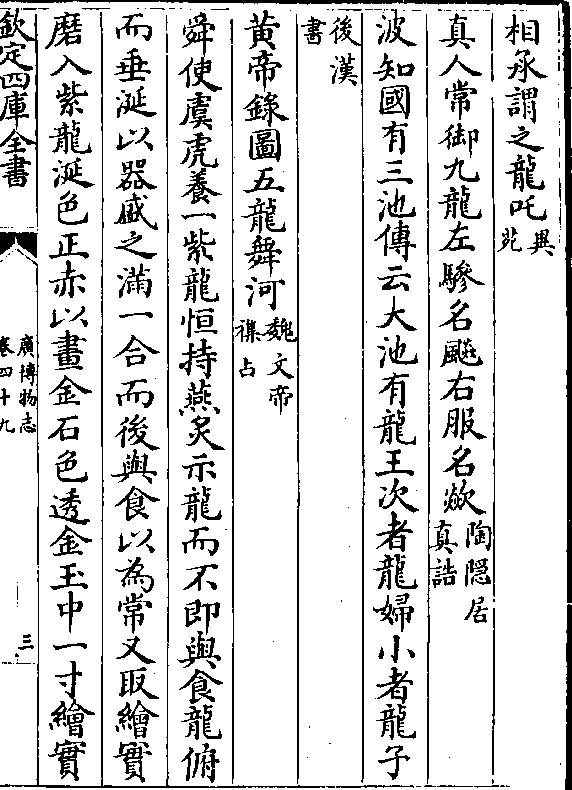 相承謂之龍吒異苑
真人常御九龍左驂名飚右服名歘陶隠居真誥
波知國有三池傳云大池有龍王次者龍婦小者龍子
後漢書
黄帝錄圖五龍舞河魏文帝襍占
舜使虞虎養一紫龍恒持燕炙示龍而不即與食龍俯
而垂涎以器盛之滿一合而後與食以為常又取繪實
磨入紫龍涎色正赤以畫金石色透金玉中一寸繪實
欽定四庫全書
廣博物志
卷四十九
三